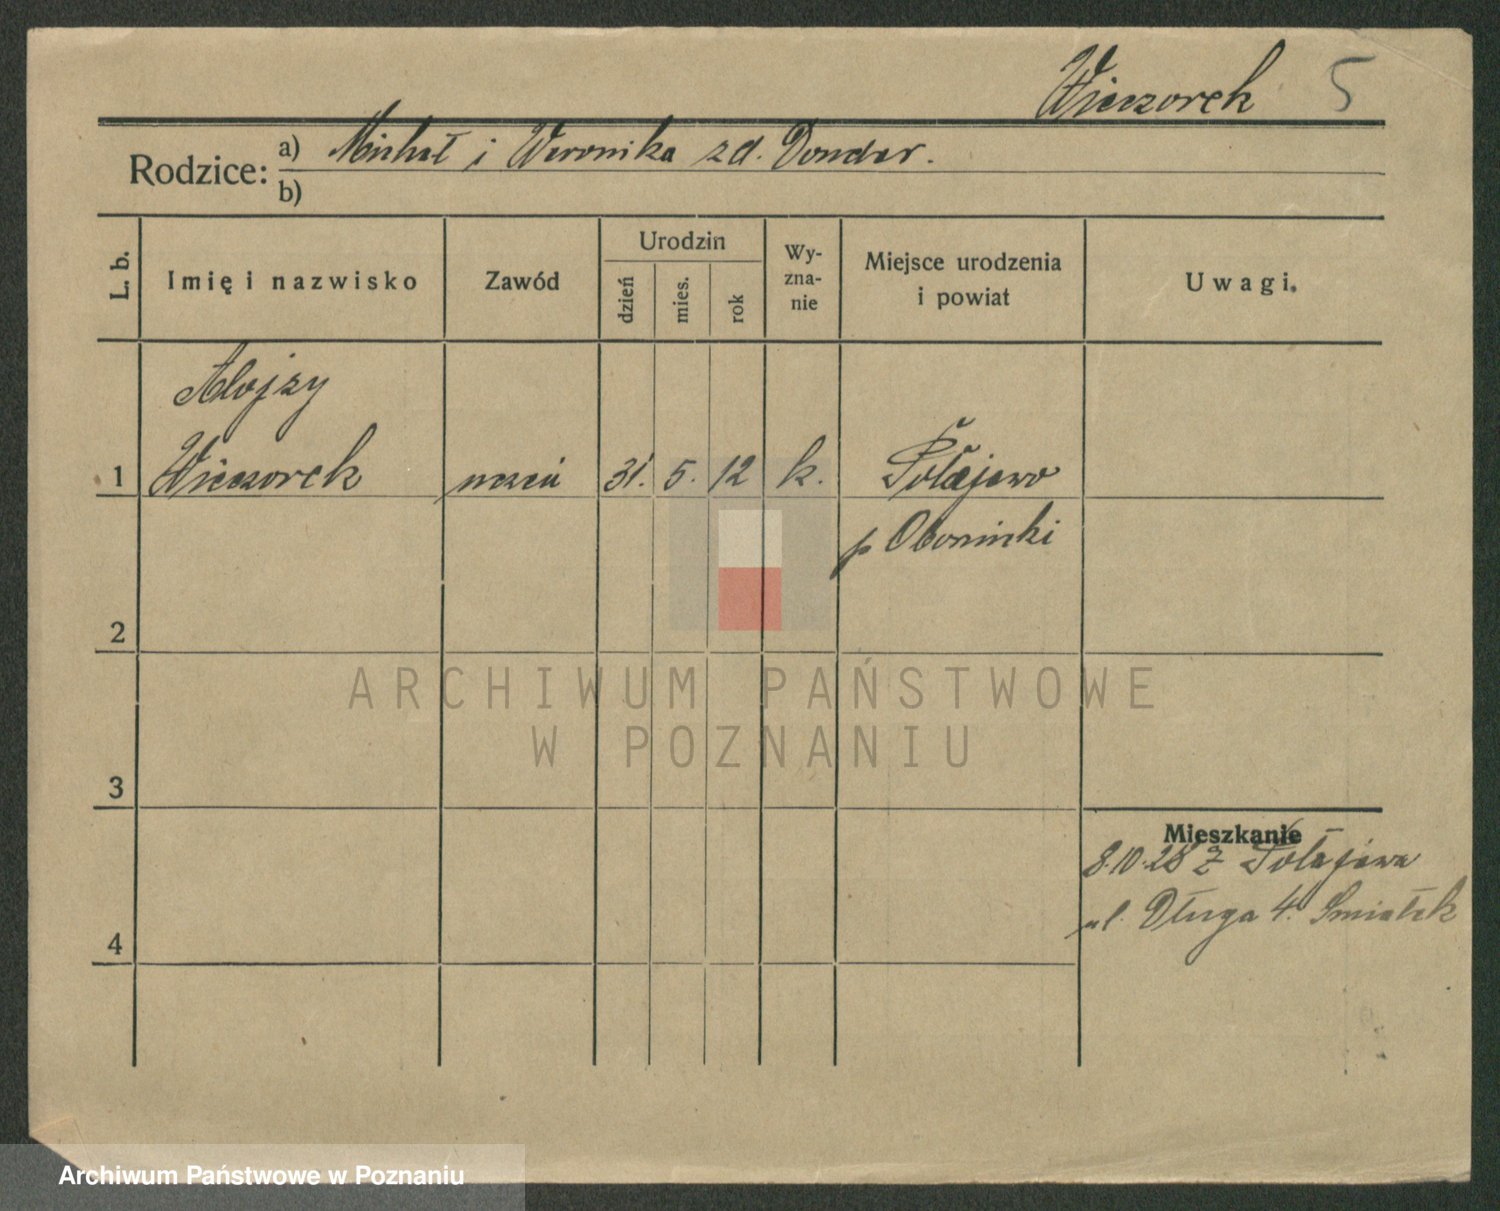 Wieczorek 5
Rodzice: a) Michał i Weronika zd. Dondar.
b)
L. b. Imię i nazwisko Zawód Urodzin dzień mies. rok Wy-zna-nie Miejsce urodzenia i powiat Uwagi.
Alojzy
1 Wieczorek uczeń 31. 5. 12 k. Połajewo
p Obornicki
2
ARCHIWUM PAŃSTWOWE
W POZNANIU
3
Mieszkanie
8.10.28 z Połajewa
4 ul. Długa 4. Smiałek
Archiwum Państwowe w Poznaniu